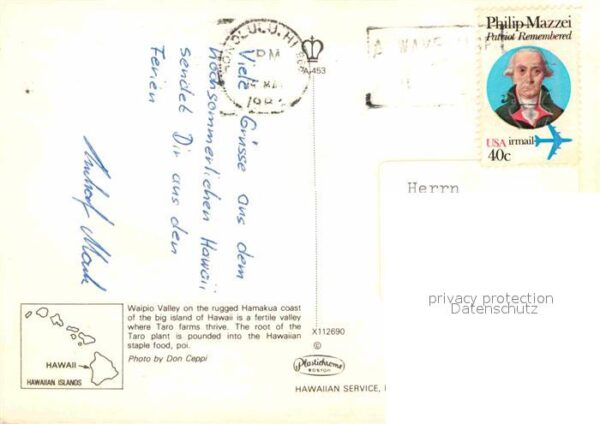 HONOLULU, HI
PM
Philip Mazzei
Patriot Remembered
USA irmail
40c
A-453
Viele Grüsse aus dem
hochsommerlichen Hawaii
sendet Dir aus den
Ferien
Herrn
privacy protection
Datenschutz
Waipio Valley on the rugged Hamakua coast
of the big island of Hawaii is a fertile valley
where Taro farms thrive. The root of the
Taro plant is pounded into the Hawaiian
staple food, poi.
Photo by Don Ceppi
HAWAII
HAWAIIAN ISLANDS
X112690
©
Plastichrome
BOSTON
HAWAIIAN SERVICE,